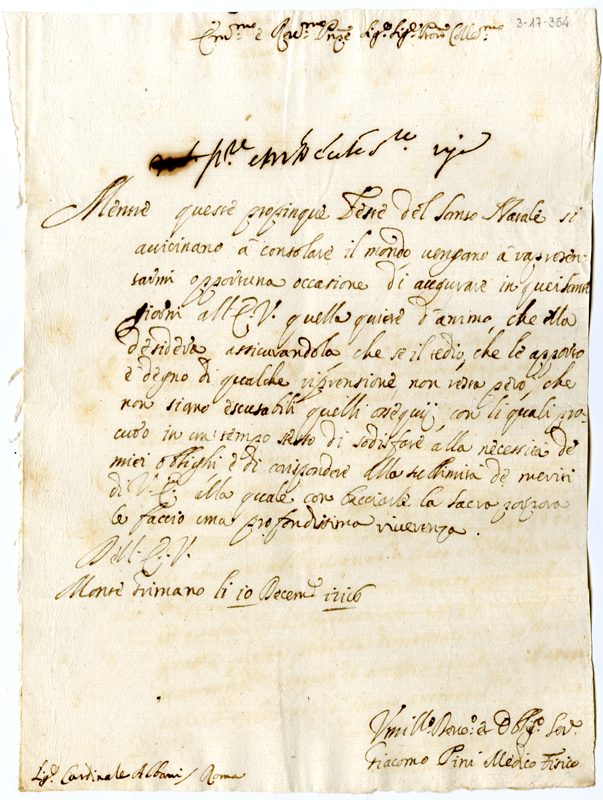 3-17-364
Em.mo e Rev.mo Prñpe Sig.r Sig.r Pron Coll.mo
Mentre queste propinque Feste del Santo Natale si
avvicinano à consolare il mondo vengano à rapresen-
tarmi opportuna occasione di augurare in quei Santi
giorni all'E.V. quella quiete d'animo, che ella
desidera, assicurandola, che se il tedio, che le apporto
è degno di qualche riprensione non resta però, che
non siano escusabili quelli ossequij, con li quali pro-
curo in un tempo stesso di sodisfare alla necessità de
miei oblighi e di corispondere alla sublimità de meriti
di V.E. alla quale con bacciarle la sacra porpora
le faccio una profondissima riverenza.
Dell'E.V.
Monte Grimano li 10 Decem.e 1716
Umill.o Devo.o et Obblig.o Ser.
Giacomo Pini Medico Fisico
Sig.r Cardinale Albani / Roma